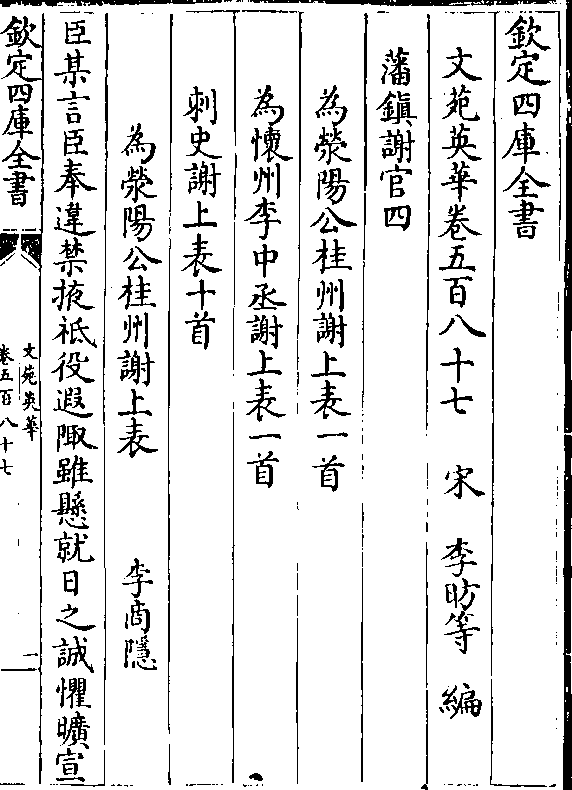 欽定四庫全書
文苑英華卷五百八十七　宋　李昉等　編
藩鎮謝官四
為滎陽公桂州謝上表一首
為懷州李中丞謝上表一首
刺史謝上表十首
為滎陽公桂州謝上表　李商隱
臣某言臣奉違禁掖祗役遐陬雖懸就日之誠懼曠宣
欽定四庫全書
文苑英華
卷五百八十七
一